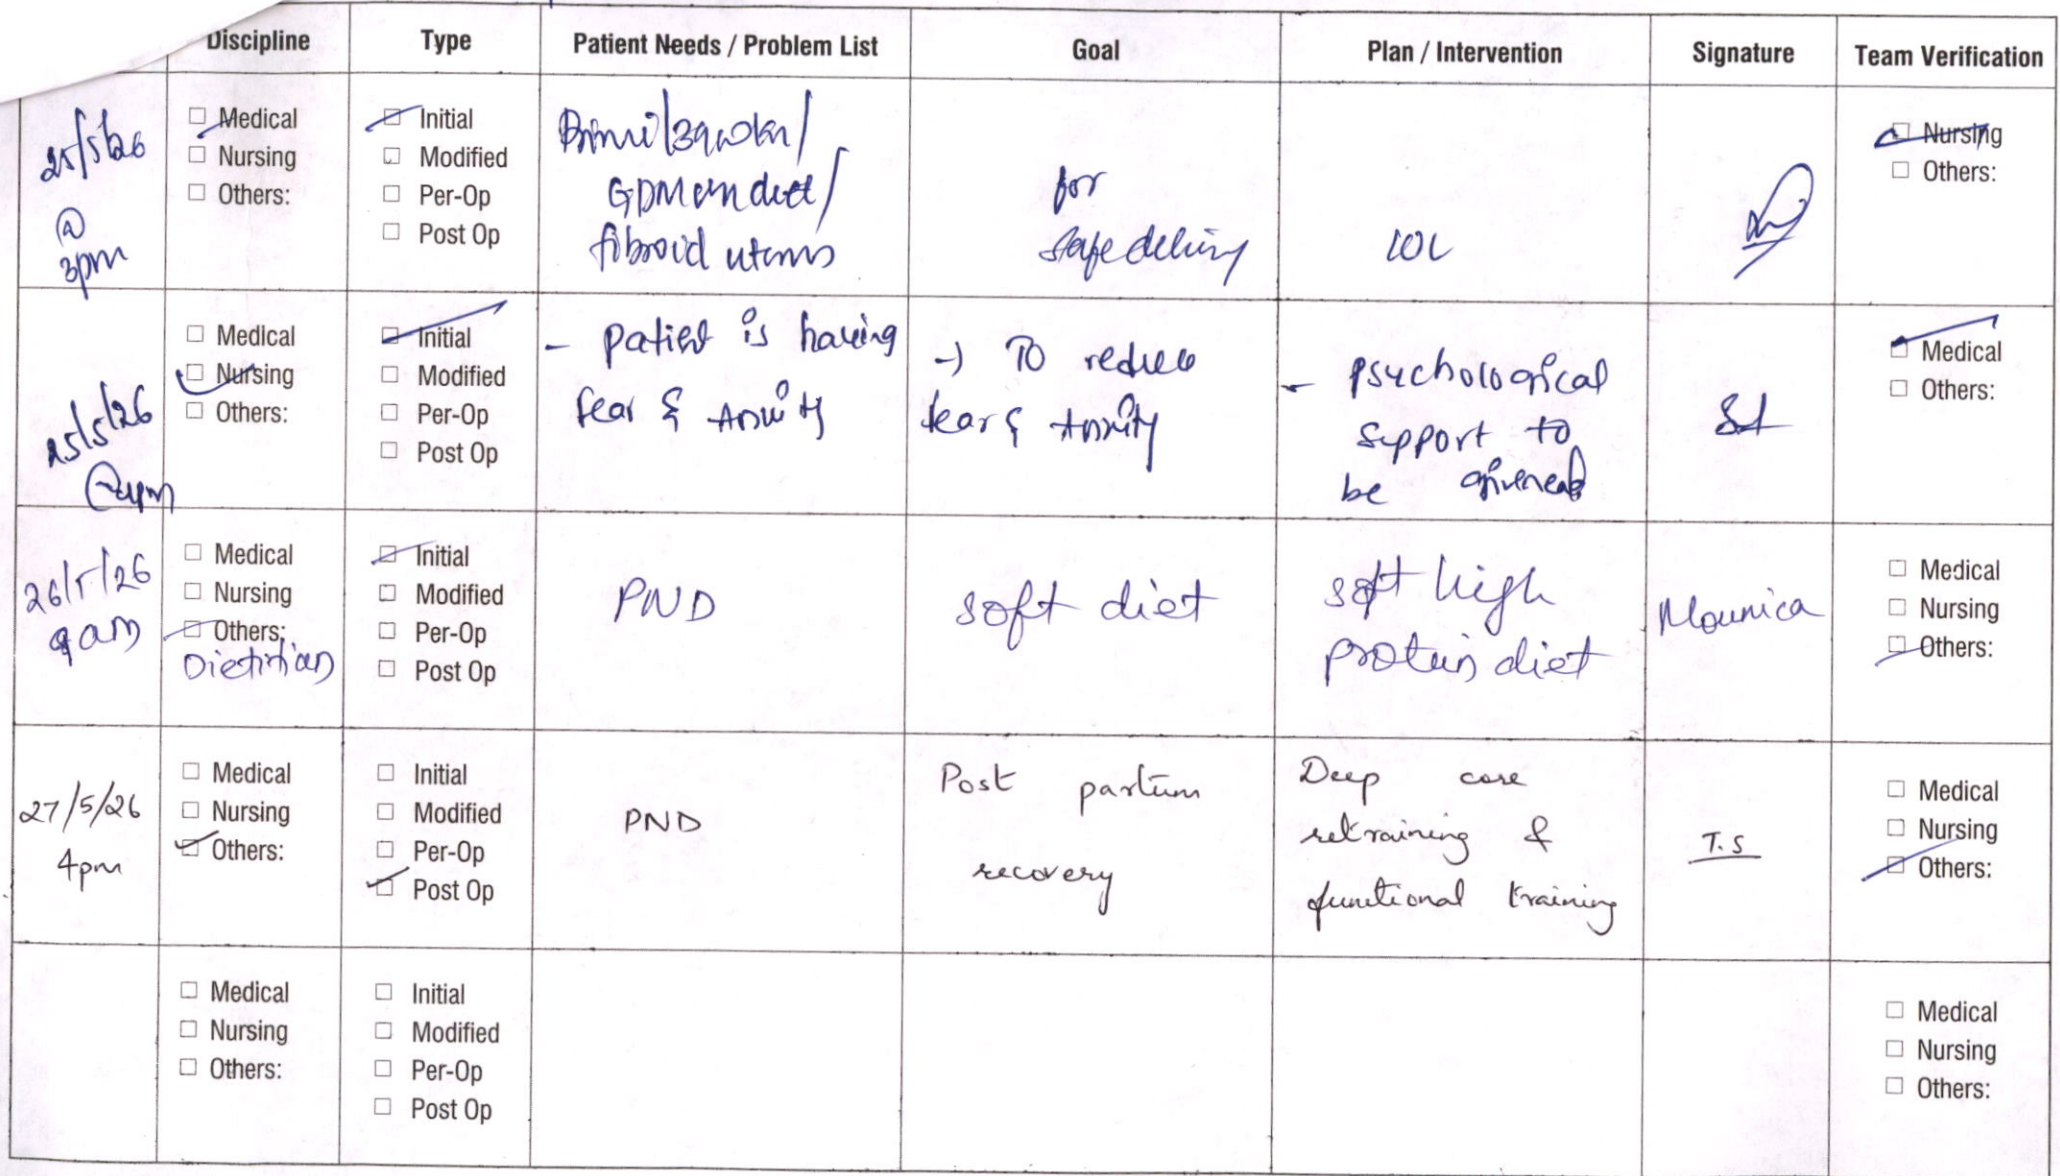 Discipline Type Patient Needs / Problem List Goal Plan / Intervention Signature Team Verification
25/5/26
@
3pm
☐ Medical
☐ Nursing
☐ Others:
☐ Initial
☐ Modified
☐ Per-Op
☐ Post Op
Primi/39wks/
GDM on diet/
fibroid uterus
for
safe delivery
IOL
☐ Nursing
☐ Others:
25/5/26
@4pm
☐ Medical
☐ Nursing
☐ Others:
☐ Initial
☐ Modified
☐ Per-Op
☐ Post Op
- patient is having
fear &
-> To reduce
fear &
- psychological
support to
be
☐ Medical
☐ Others:
26/5/26
9am
☐ Medical
☐ Nursing
☐ Others:
Dietitian
☐ Initial
☐ Modified
☐ Per-Op
☐ Post Op
PND
soft diet
soft high
protein diet
Mounica
☐ Medical
☐ Nursing
☐ Others:
27/5/26
4pm
☐ Medical
☐ Nursing
☐ Others:
☐ Initial
☐ Modified
☐ Per-Op
☐ Post Op
PND
Post partum
recovery
Deep core
retraining &
functional training
T.S
☐ Medical
☐ Nursing
☐ Others:
☐ Medical
☐ Nursing
☐ Others:
☐ Initial
☐ Modified
☐ Per-Op
☐ Post Op
☐ Medical
☐ Nursing
☐ Others: